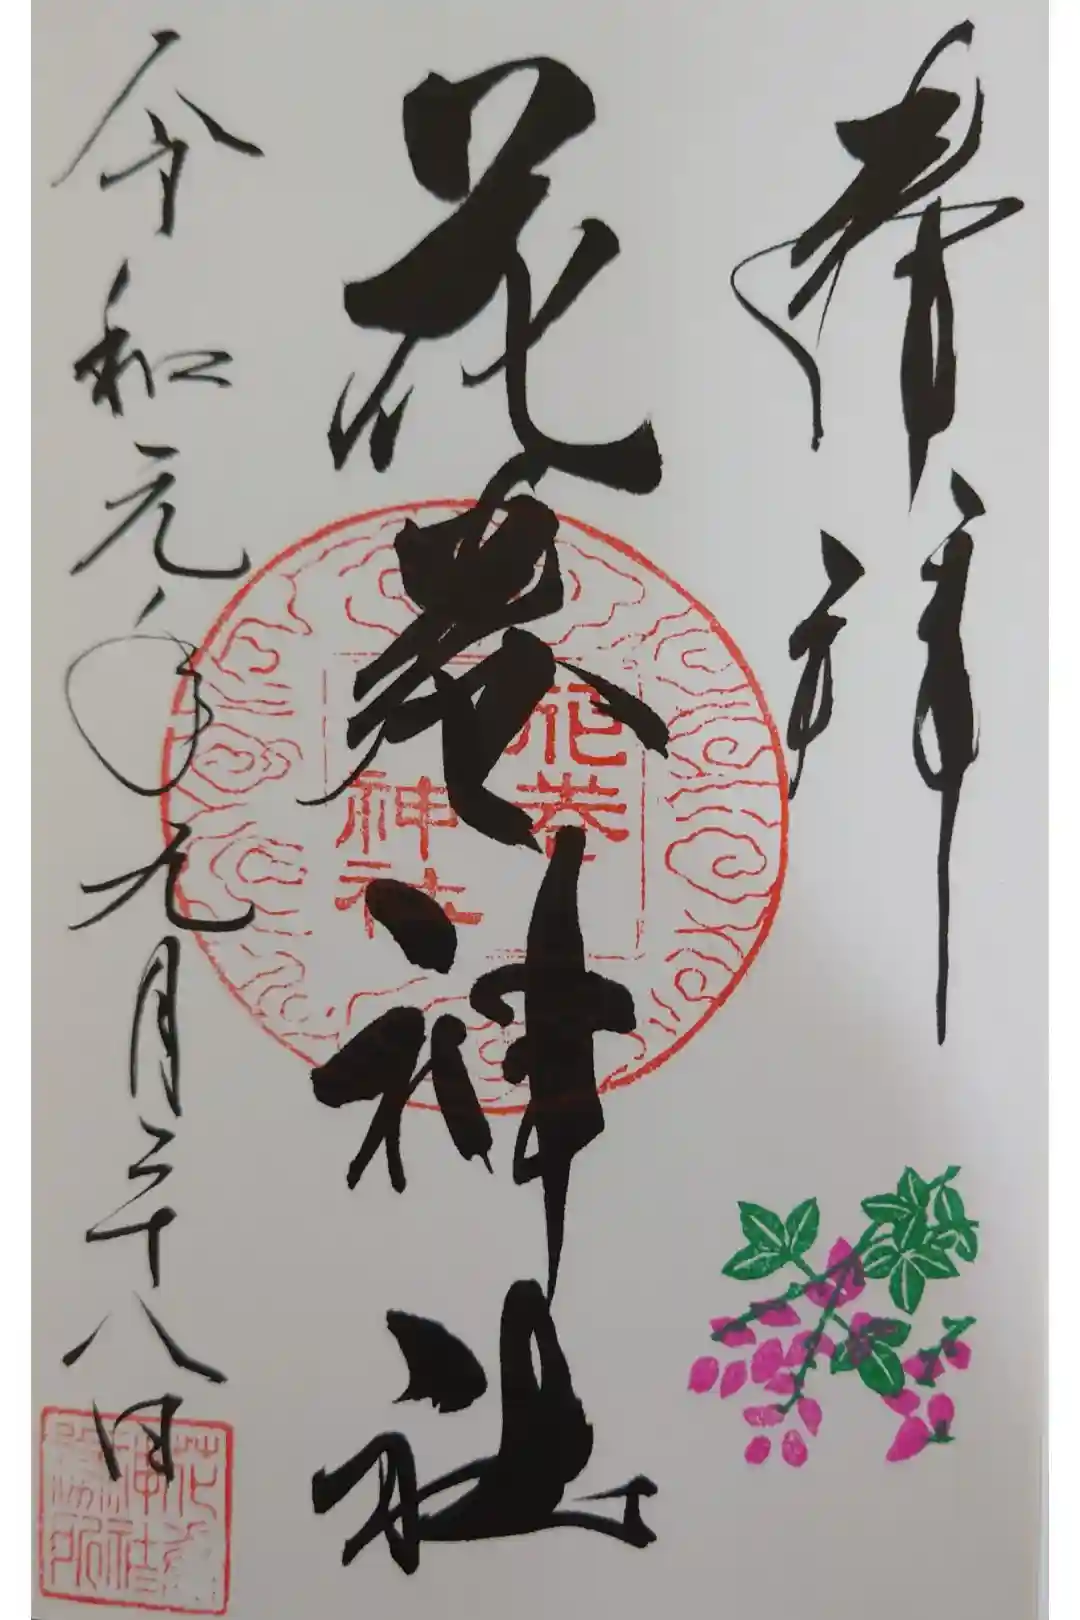 奉拝
花巻神社
花巻
神社
令和元年九月二十八日
花巻
神社